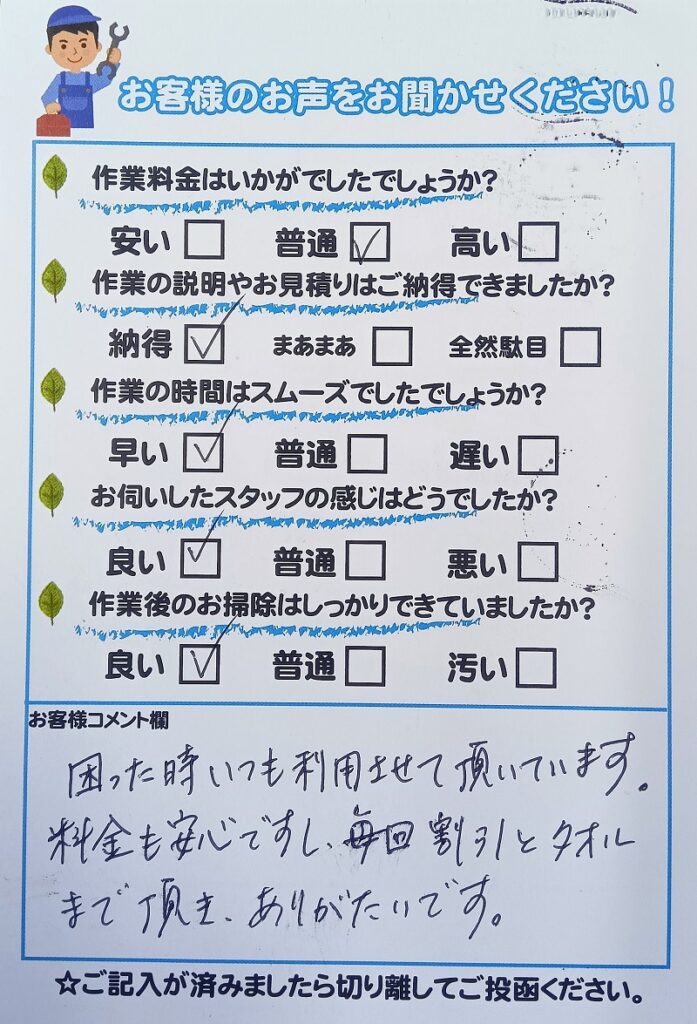 お客様のお声をお聞かせください！
作業料金はいかがでしたでしょうか?
安い □ 普通 ☑ 高い □
作業の説明やお見積りはご納得できましたか?
納得 ☑ まあまあ □ 全然駄目 □
作業の時間はスムーズでしたでしょうか?
早い ☑ 普通 □ 遅い □
お伺いしたスタッフの感じはどうでしたか?
良い ☑ 普通 □ 悪い □
作業後のお掃除はしっかりできていましたか?
良い ☑ 普通 □ 汚い □
お客様コメント欄
困った時いつも利用させて頂いています。
料金も安心ですし、毎回割引とタオル
まで頂き、ありがたいです。
☆ご記入が済みましたら切り離してご投函ください。